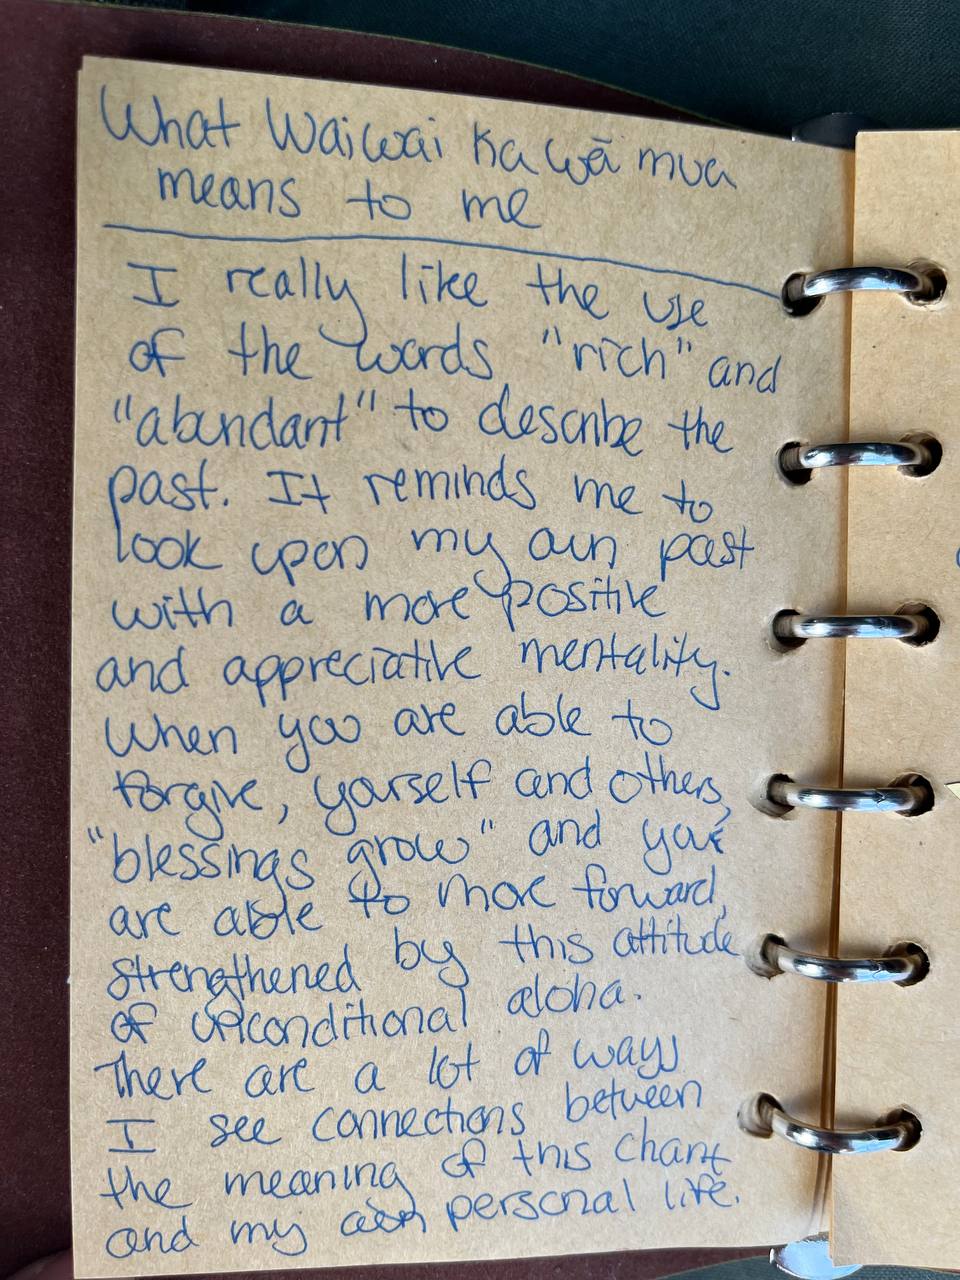 What Waiwai Ka wā mua
means to me
I really like the use
of the words "rich" and
"abundant" to describe the
past. It reminds me to
look upon my own past
with a more positive
and appreciative mentality.
When you are able to
forgive, yourself and others,
"blessings grow" and you
are able to move forward,
strengthened by this attitude
of unconditional aloha.
There are a lot of ways
I see connections between
the meaning of this chant
and my own personal life.